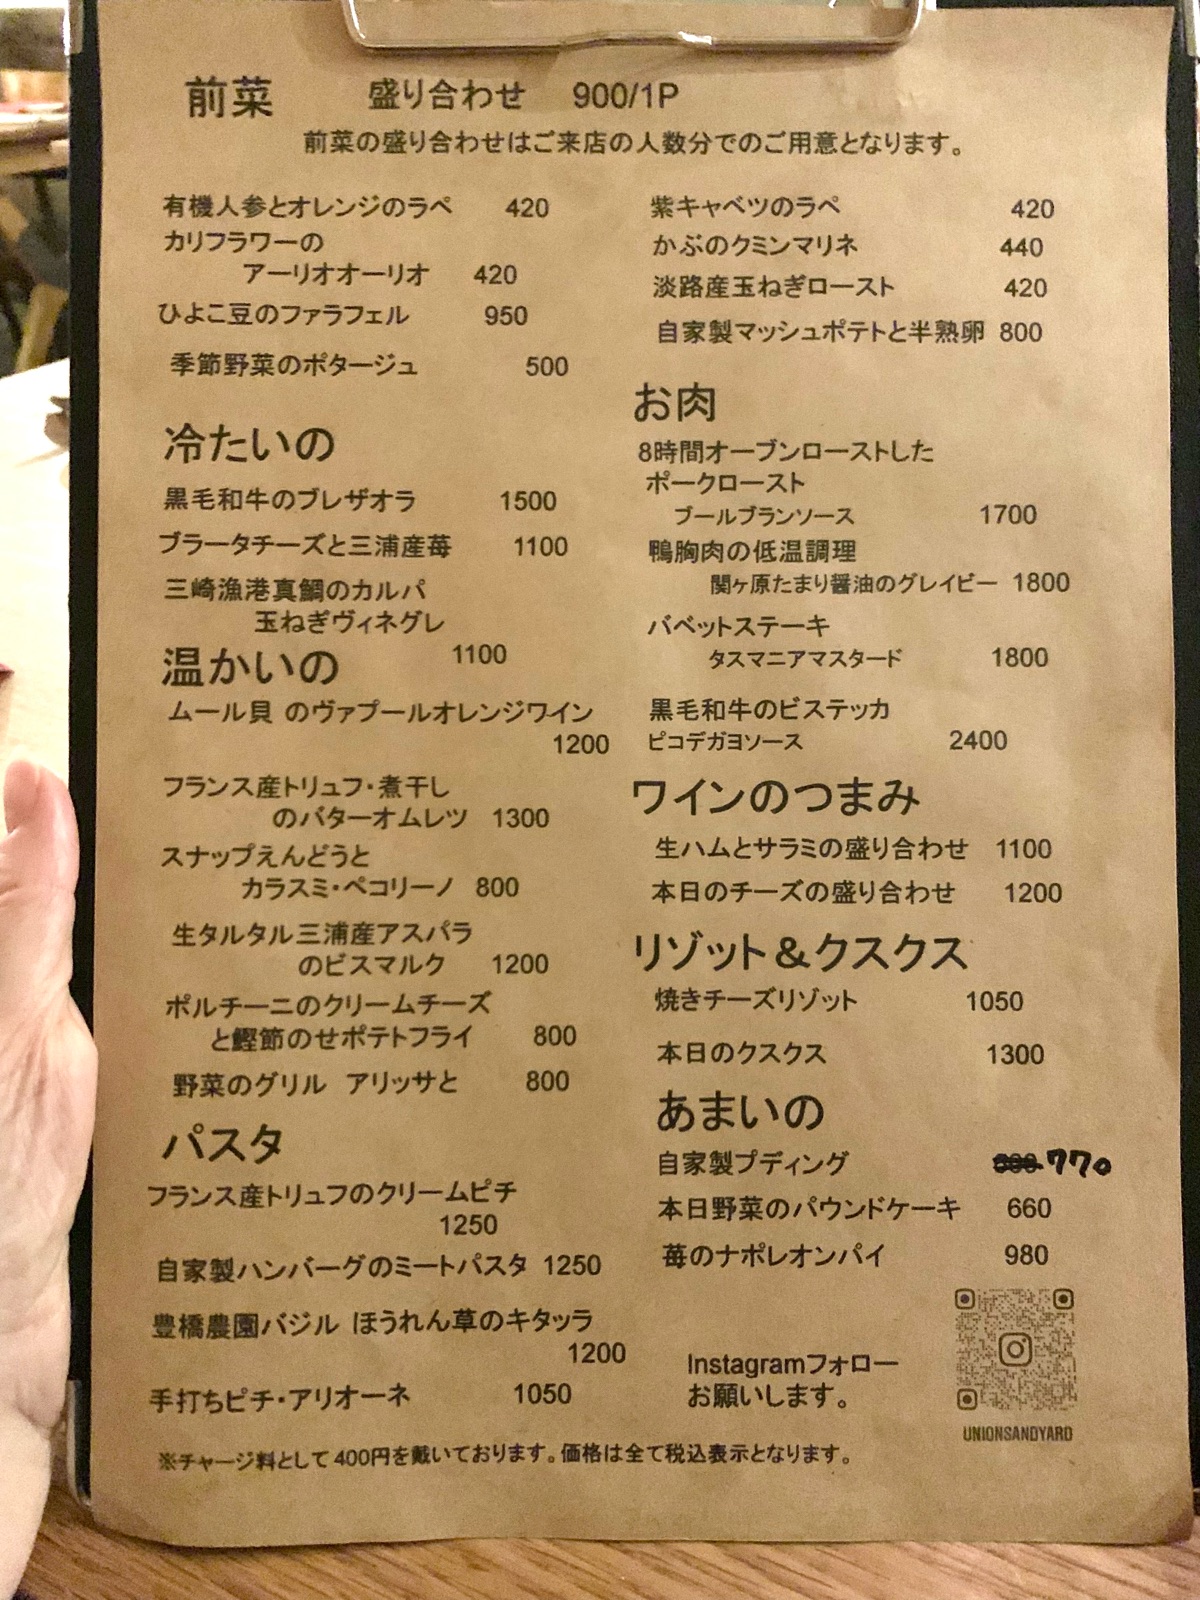 前菜 盛り合わせ 900/1P
前菜の盛り合わせはご来店の人数分でのご用意となります。
有機人参とオレンジのラペ 420
カリフラワーの
アーリオオーリオ 420
ひよこ豆のファラフェル 950
季節野菜のポタージュ 500
紫キャベツのラペ 420
かぶのクミンマリネ 440
淡路産玉ねぎロースト 420
自家製マッシュポテトと半熟卵 800
冷たいの
黒毛和牛のブレザオラ 1500
ブラータチーズと三浦産苺 1100
三崎漁港真鯛のカルパ
玉ねぎヴィネグレ
1100
温かいの
ムール貝 のヴァプールオレンジワイン
1200
フランス産トリュフ・煮干し
のバターオムレツ 1300
スナップえんどうと
カラスミ・ペコリーノ 800
生タルタル三浦産アスパラ
のビスマルク 1200
ポルチーニのクリームチーズ
と鰹節のせポテトフライ 800
野菜のグリル アリッサと 800
パスタ
フランス産トリュフのクリームピチ
1250
自家製ハンバーグのミートパスタ 1250
豊橋農園バジル ほうれん草のキタッラ
1200
手打ちピチ・アリオーネ 1050
お肉
8時間オーブンローストした
ポークロースト
ブールブランソース 1700
鴨胸肉の低温調理
関ヶ原たまり醤油のグレイビー 1800
バベットステーキ
タスマニアマスタード 1800
黒毛和牛のビステッカ
ピコデガヨソース 2400
ワインのつまみ
生ハムとサラミの盛り合わせ 1100
本日のチーズの盛り合わせ 1200
リゾット＆クスクス
焼きチーズリゾット 1050
本日のクスクス 1300
あまいの
自家製プディング 770
本日野菜のパウンドケーキ 660
苺のナポレオンパイ 980
Instagramフォロー
お願いします。
UNIONSANDYARD
※チャージ料として400円を戴いております。価格は全て税込表示となります。